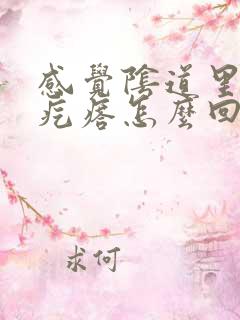 感覺陰道里
疙瘩怎麼回
求何